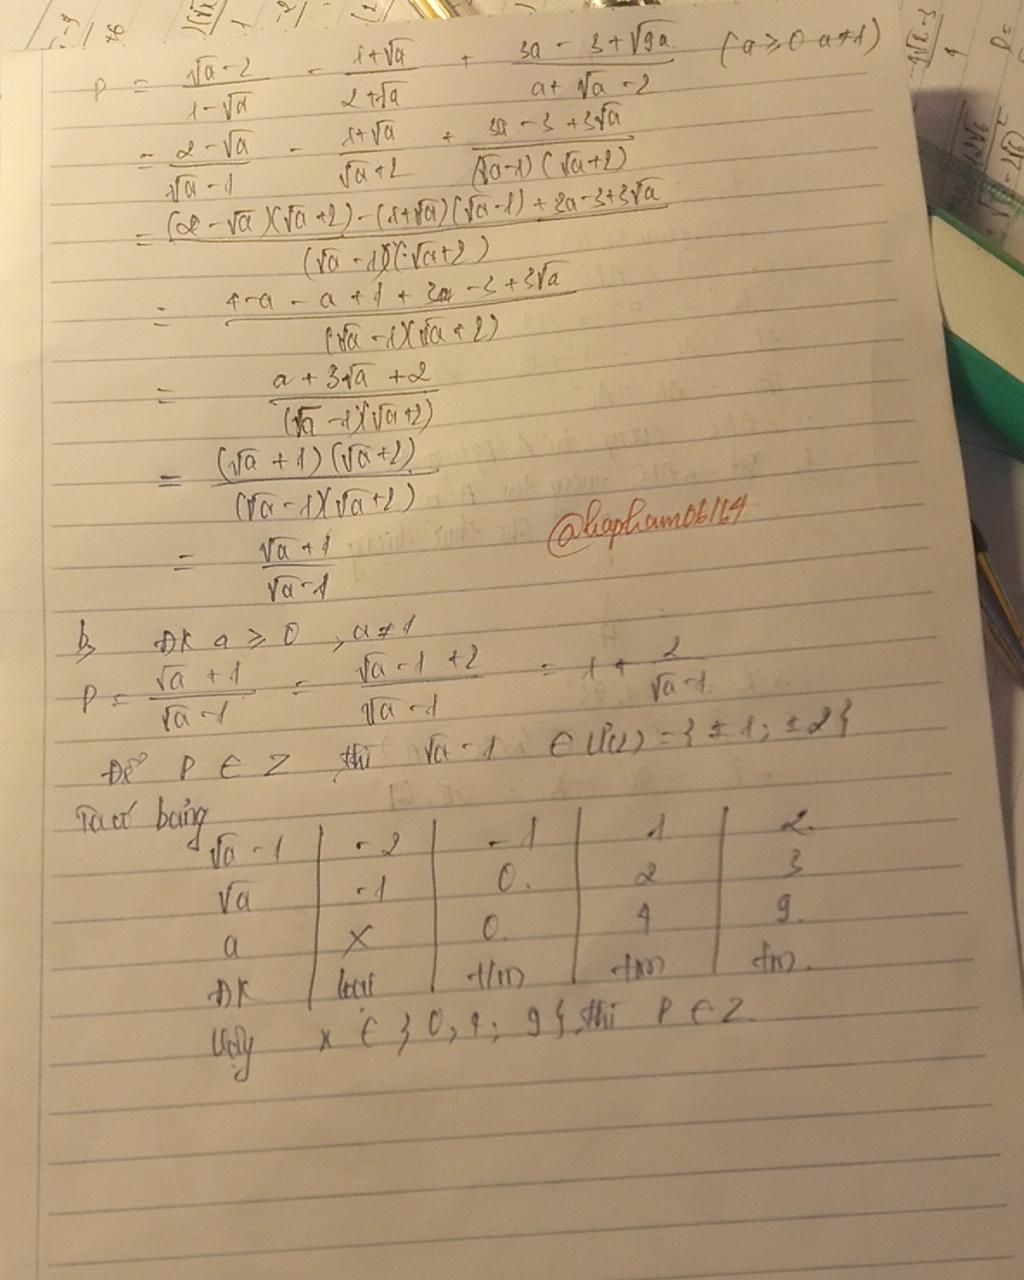 P = (√a - 2)/(1 - √a) - (1 + √a)/(2 + √a) + (3a - 3 + √9a)/(a + √a - 2) (a ≥ 0 a ≠ 1)
= (2 - √a)/(√a - 1) - (1 + √a)/(√a + 2) + (3a - 3 + 3√a)/((√a - 1)(√a + 2))
= ((2 - √a)(√a + 2) - (1 + √a)(√a - 1) + 3a - 3 + 3√a)/((√a - 1)(√a + 2))
= (4 - a - a + 1 + 3a - 3 + 3√a)/((√a - 1)(√a + 2))
= (a + 3√a + 2)/((√a - 1)(√a + 2))
= ((√a + 1)(√a + 2))/((√a - 1)(√a + 2))
= (√a + 1)/(√a - 1)
@hapham06164
b, ĐK a ≥ 0 , a ≠ 1
P = (√a + 1)/(√a - 1) = (√a - 1 + 2)/(√a - 1) = 1 + 2/(√a - 1)
Để P ∈ Z thì √a - 1 ∈ Ư(2) = { ± 1; ± 2 }
Ta có bảng
√a - 1 | - 2 | - 1 | 1 | 2
√a | - 1 | 0 | 2 | 3
a | X | 0 | 4 | 9
ĐK | loại | t/m | t/m | t/m
Vậy x ∈ { 0, 4; 9 } thì P ∈ Z